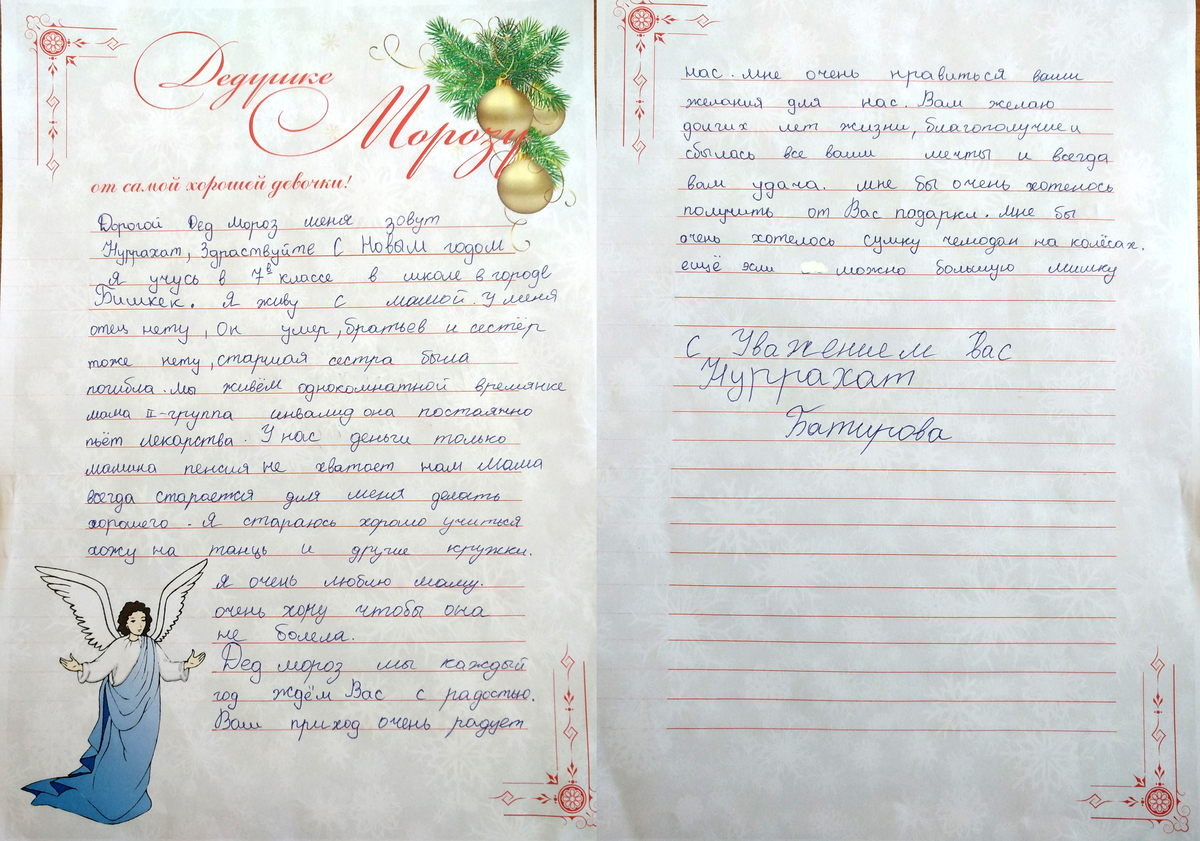 Дедушке
Морозу
от самой хорошей девочки!
Дорогой Дед мороз меня зовут
Нуррахат, Здраствуйте С Новым годом
Я учусь в 7в классе в школе в городе
Бишкек. Я живу с мамой. У меня
отец нету, Он умер, братьев и сестёр
тоже нету, старшая сестра была
погибла. мы живём однокомнатной времянке
мама II-группа инвалид она постоянно
пьёт лекарства. У нас деньги только
мамина пенсия не хватает нам Мама
всегда старается для меня делать
хорошего. Я стараюсь хорошо учиться
хожу на танць и другие кружки.
Я очень люблю маму.
очень хочу чтобы она
не болела.
Дед мороз мы каждый
год ждём Вас с радостью.
Ваш приход очень радует
нас. мне очень нравиться ваши
желания для нас. Вам желаю
долгих лет жизни, благополучие и
сбылось все ваши мечты и всегда
вам удача. мне бы очень хотенось
получить от Вас подарки. Мне бы
очень хотелось сумку чемодан на колёсах.
ещё если можно большую мишку
С Уважением Вас
Нуррахат
Батирова